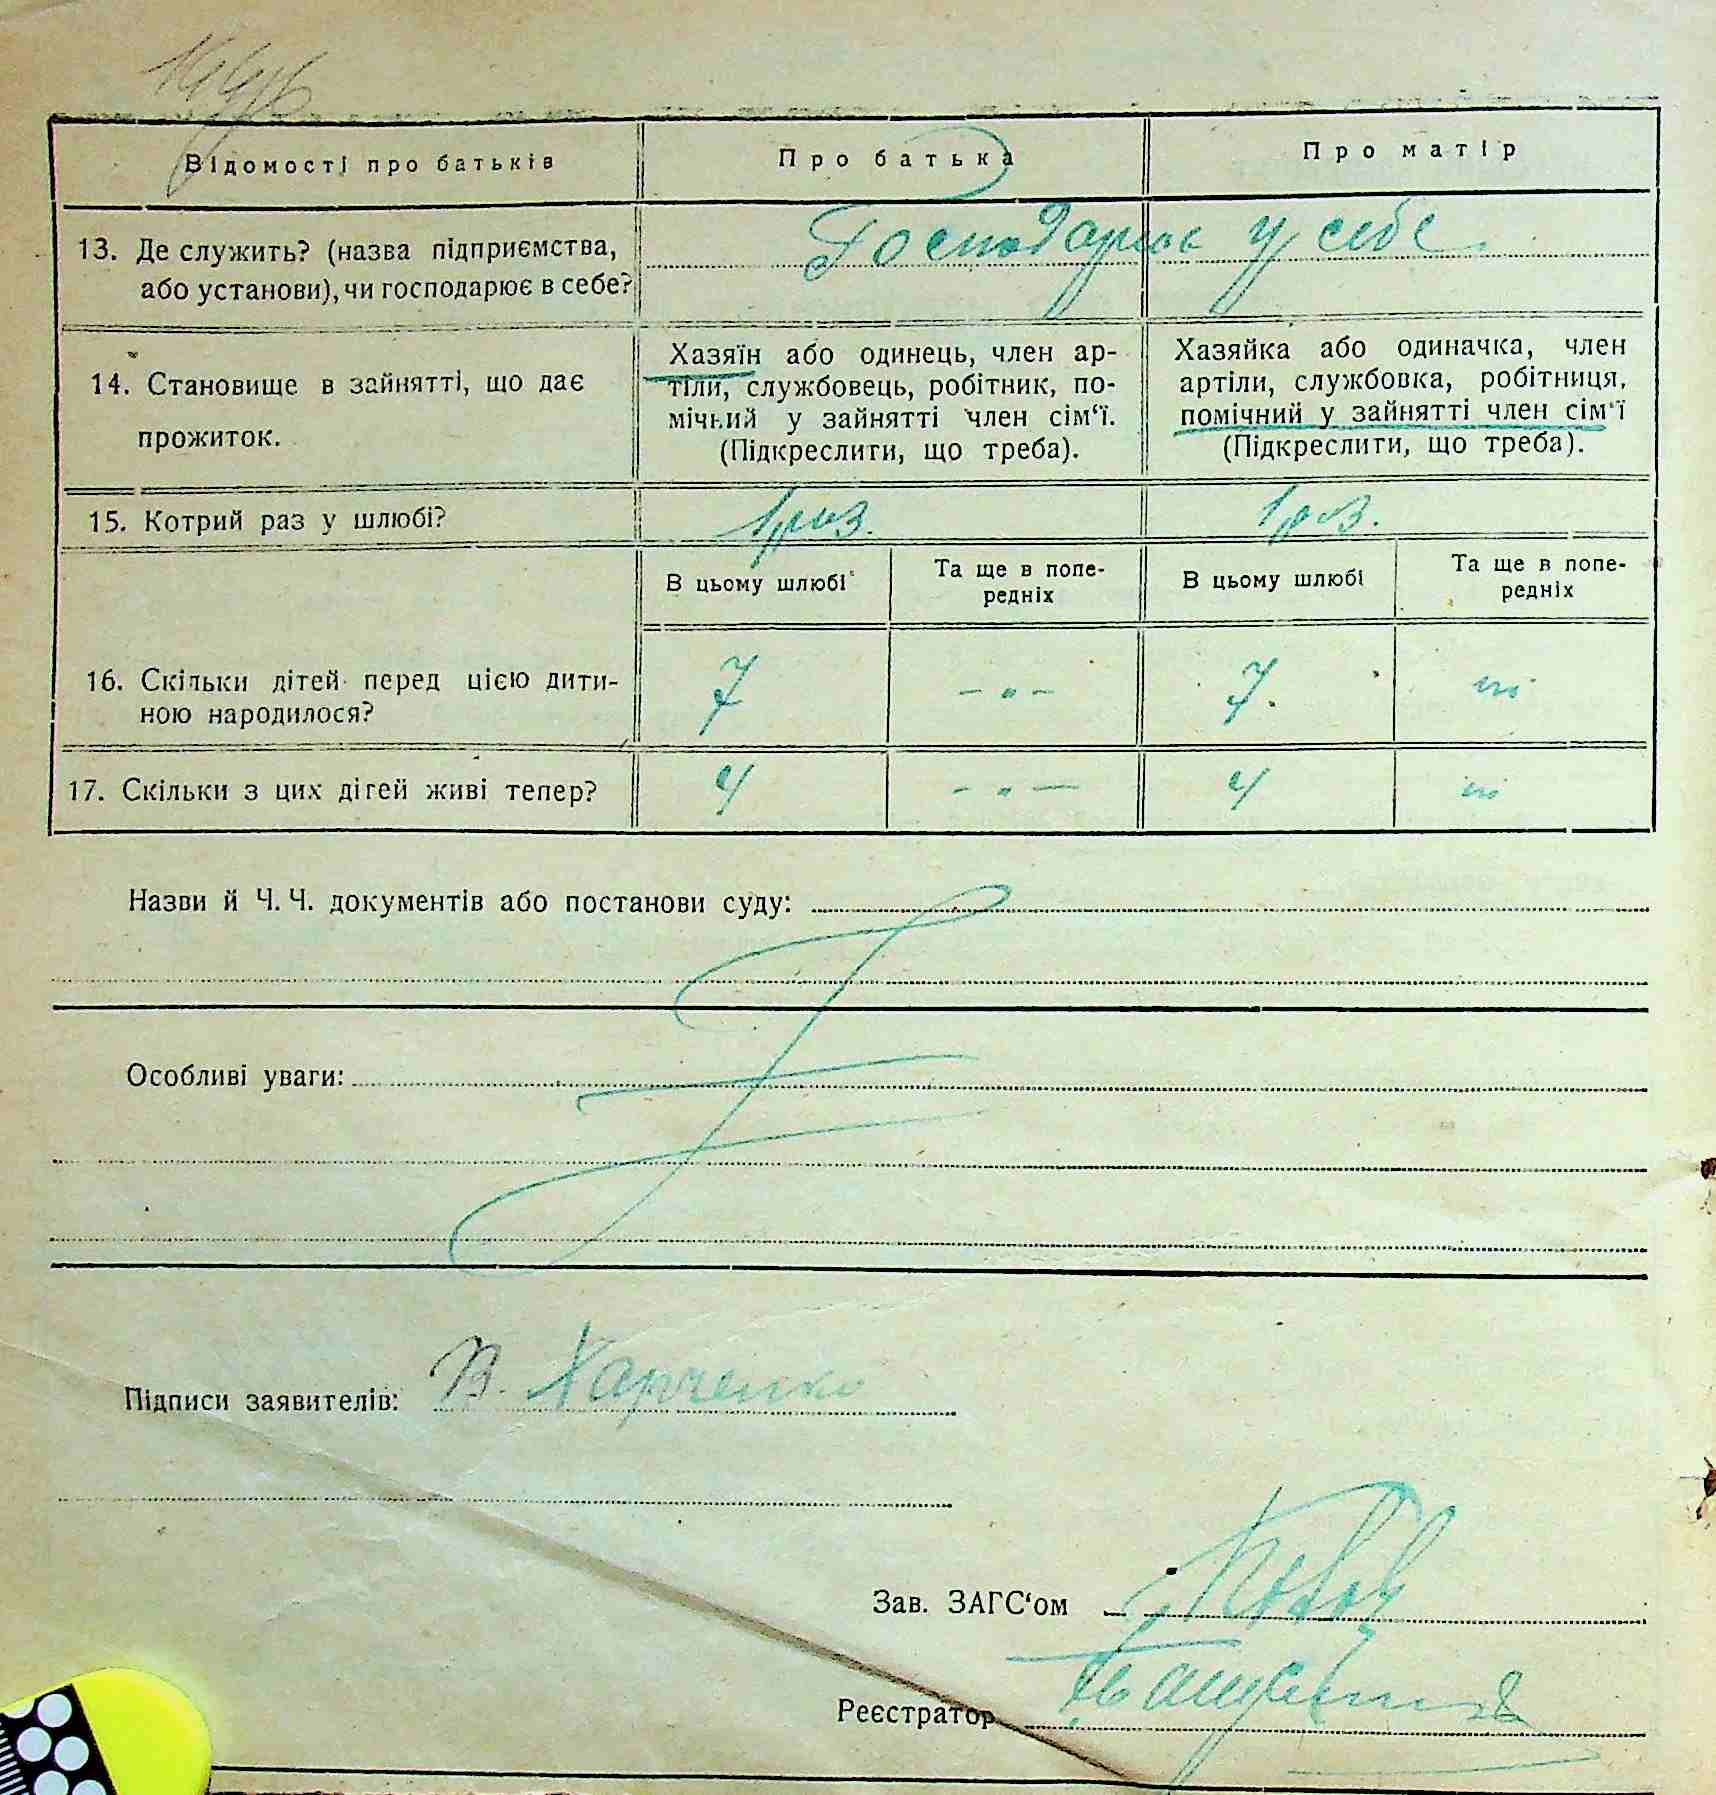 Відомості про батьків
Про батька
Про матір
13. Де служить? (назва підприємства,
або установи), чи господарює в себе?
Господарює у себе
14. Становище в зайнятті, що дає
прожиток.
Хазяїн або одинець, член ар-
тіли, службовець, робітник, по-
мічний у зайнятті член сім‘ї.
(Підкреслити, що треба).
Хазяйка або одиначка, член
артіли, службовка, робітниця,
помічний у зайнятті член сім‘ї
(Підкреслити, що треба).
15. Котрий раз у шлюбі?
1 раз.
1 раз.
В цьому шлюбі
Та ще в попе-
редніх
В цьому шлюбі
Та ще в попе-
редніх
16. Скільки дітей перед цією дити-
ною народилося?
7
- " -
7.
17. Скільки з цих дітей живі тепер?
4
- " -
4
Назви й Ч. Ч. документів або постанови суду:
Особливі уваги:
Підписи заявителів: В. Харченко
Зав. ЗАГС‘ом
Реєстратор